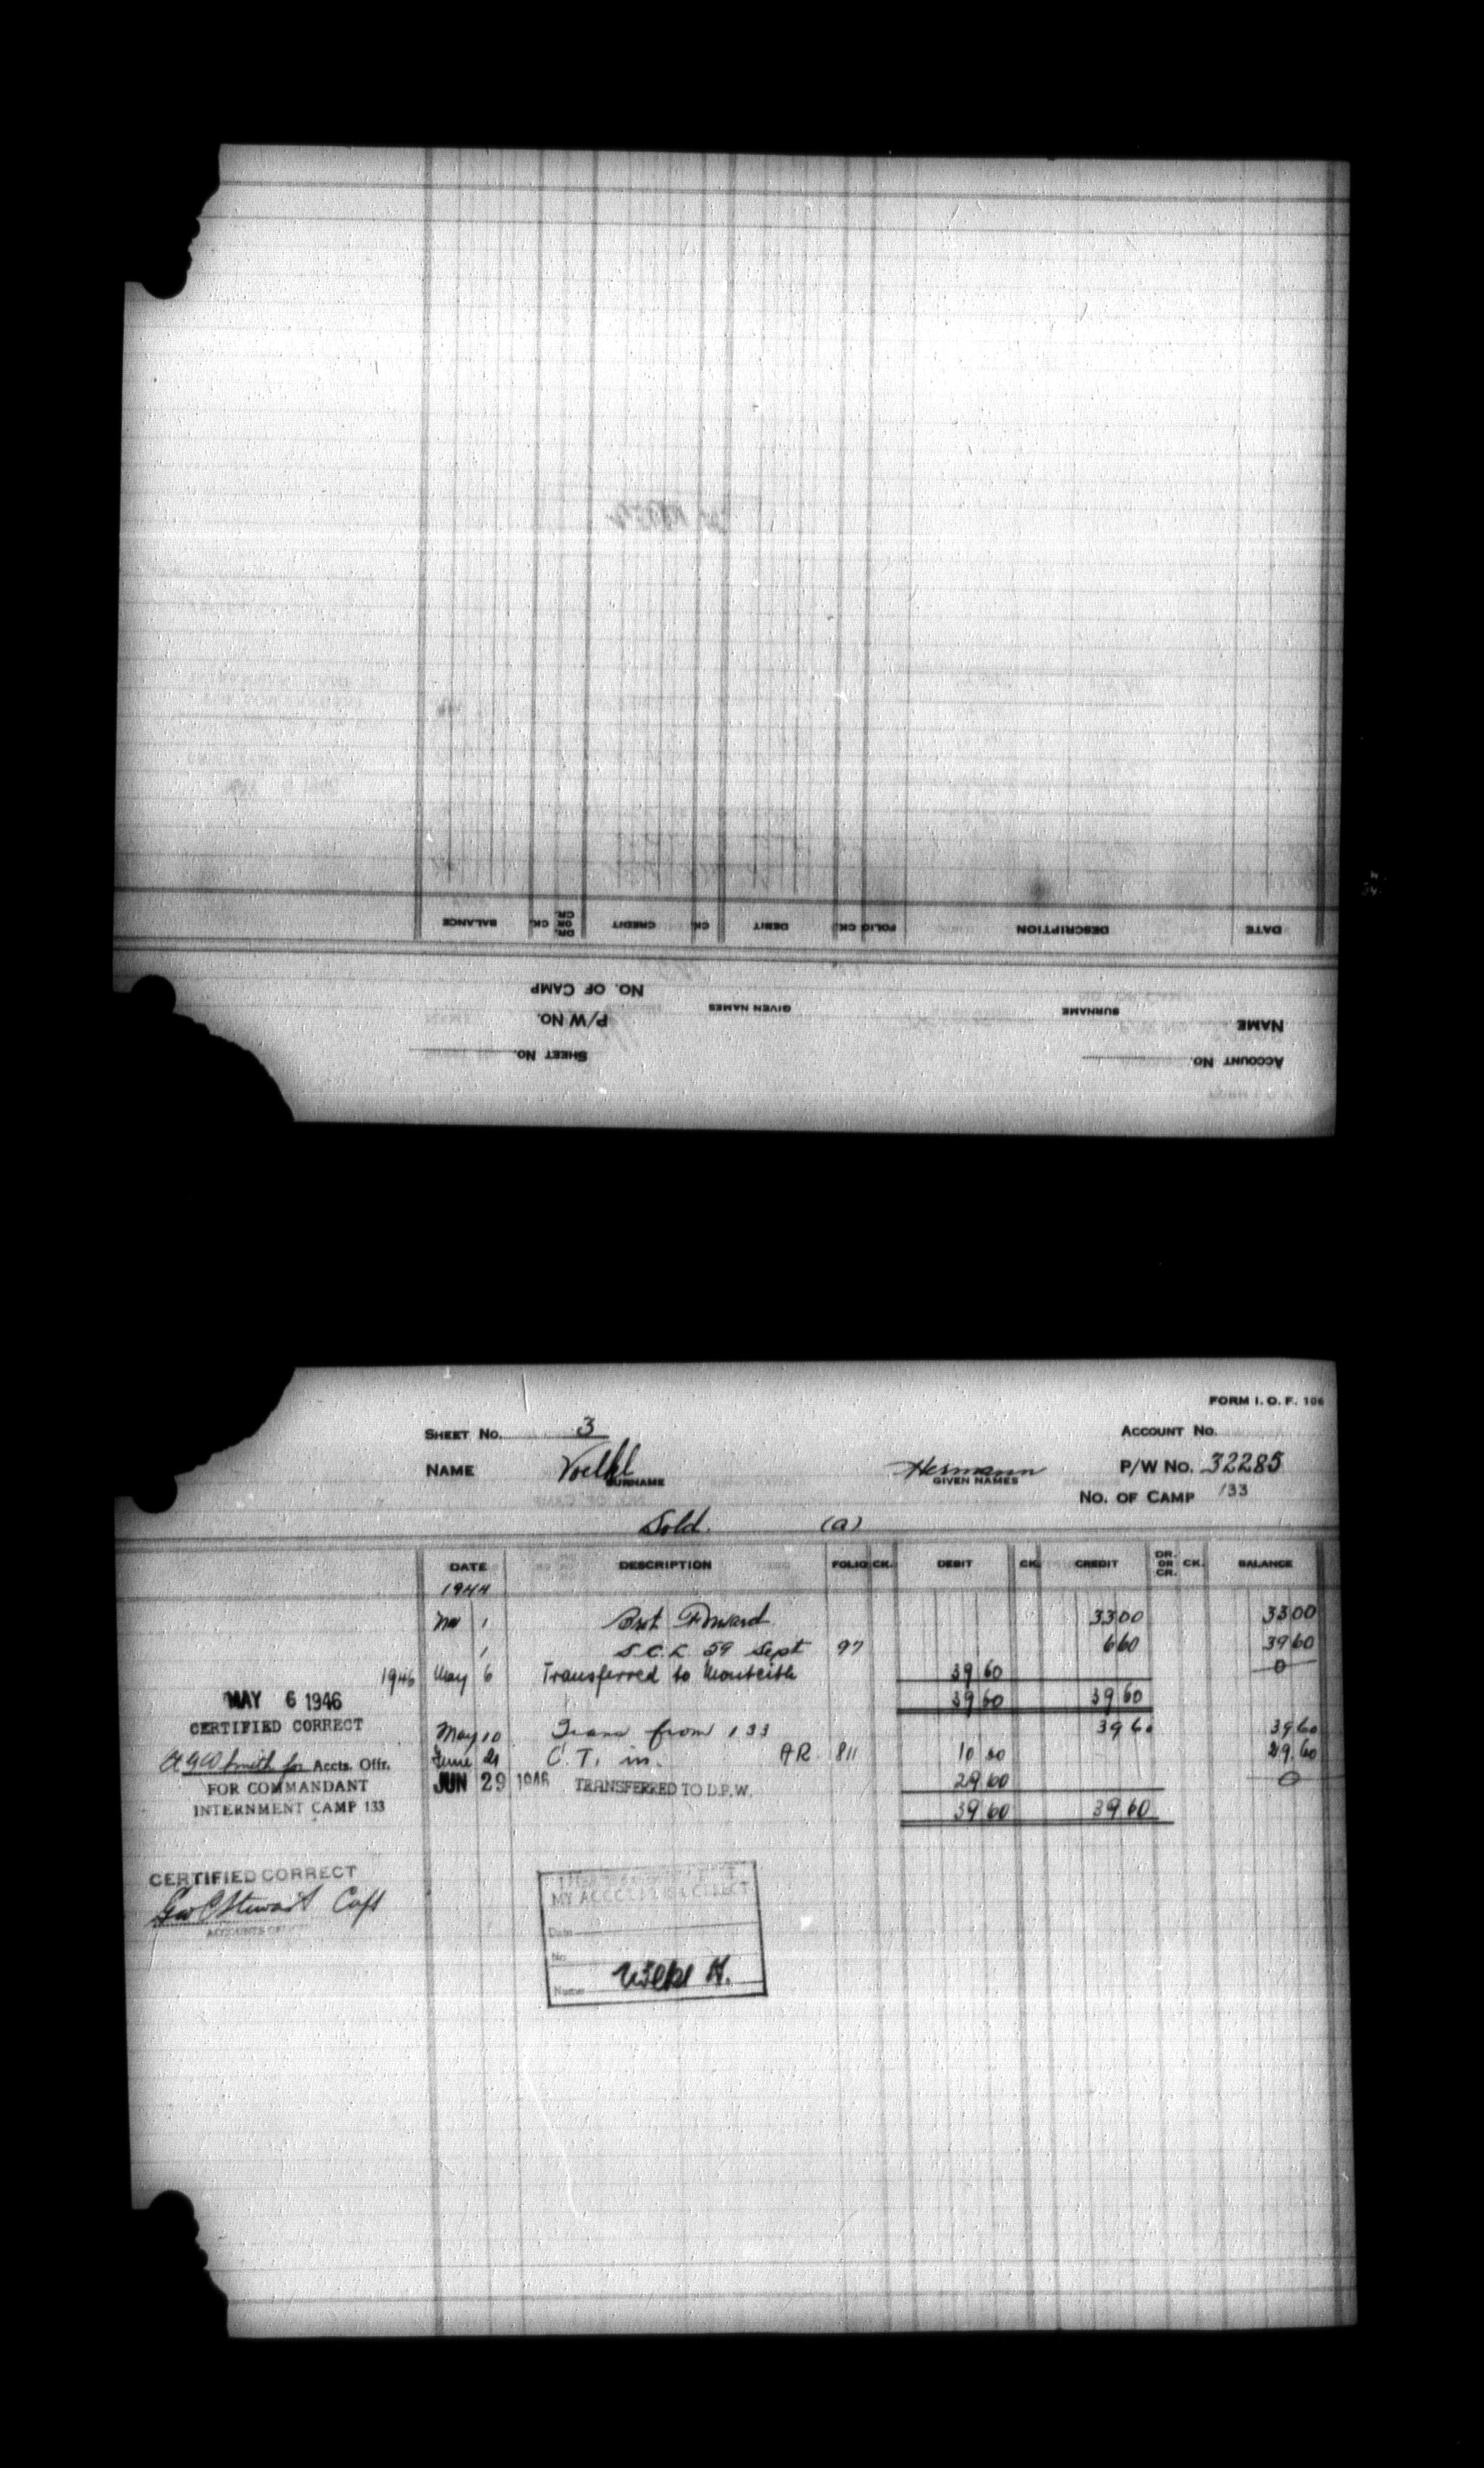 DATE DESCRIPTION FOLIO CK. DEBIT CK. CREDIT DR. OR CR. CK. BALANCE
NAME SURNAME GIVEN NAMES P/W NO. NO. OF CAMP
ACCOUNT NO. SHEET NO.
FORM I. O. F. 106
SHEET NO. 3 ACCOUNT NO.
NAME Voelkl SURNAME Hermann GIVEN NAMES P/W NO. 32285
NO. OF CAMP 133
Sold. (a)
DATE DESCRIPTION FOLIO CK. DEBIT CK. CREDIT DR. OR CR. CK. BALANCE
1944
1 Forward 33 00 33 00
1 S.C.L. 59 Sept 97 6 60 39 60
1946 May 6 Transferred to Monteith 39 60 0
39 60 39 60
May 10 Trans from 133 39 60 39 60
June 21 C. T. in. AR 811 10 00 29.60
JUN 29 1946 TRANSFERRED TO D.P.W. 29 60 0
39 60 39 60
MAY 6 1946
CERTIFIED CORRECT
Smith for Accts. Offr.
FOR COMMANDANT
INTERNMENT CAMP 133
CERTIFIED CORRECT
Geo C Stewart Capt
ACCOUNTS
MY ACCOUNT IS CORRECT
Date
No.
Name Völkl H.